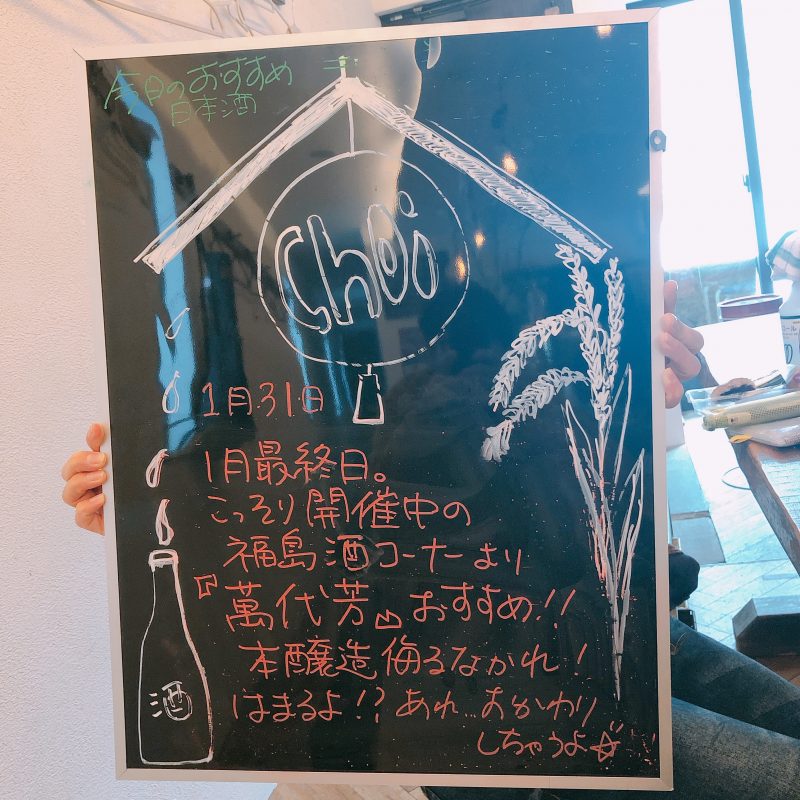 今日のおすすめ
日本酒
Choi
1月31日
1月最終日。
こっそり開催中の
福島酒コーナーより
『萬代芳』おすすめ!!
本醸造侮るなかれ!
はまるよ!?あれ...おかわり
しちゃうよ☆
酒